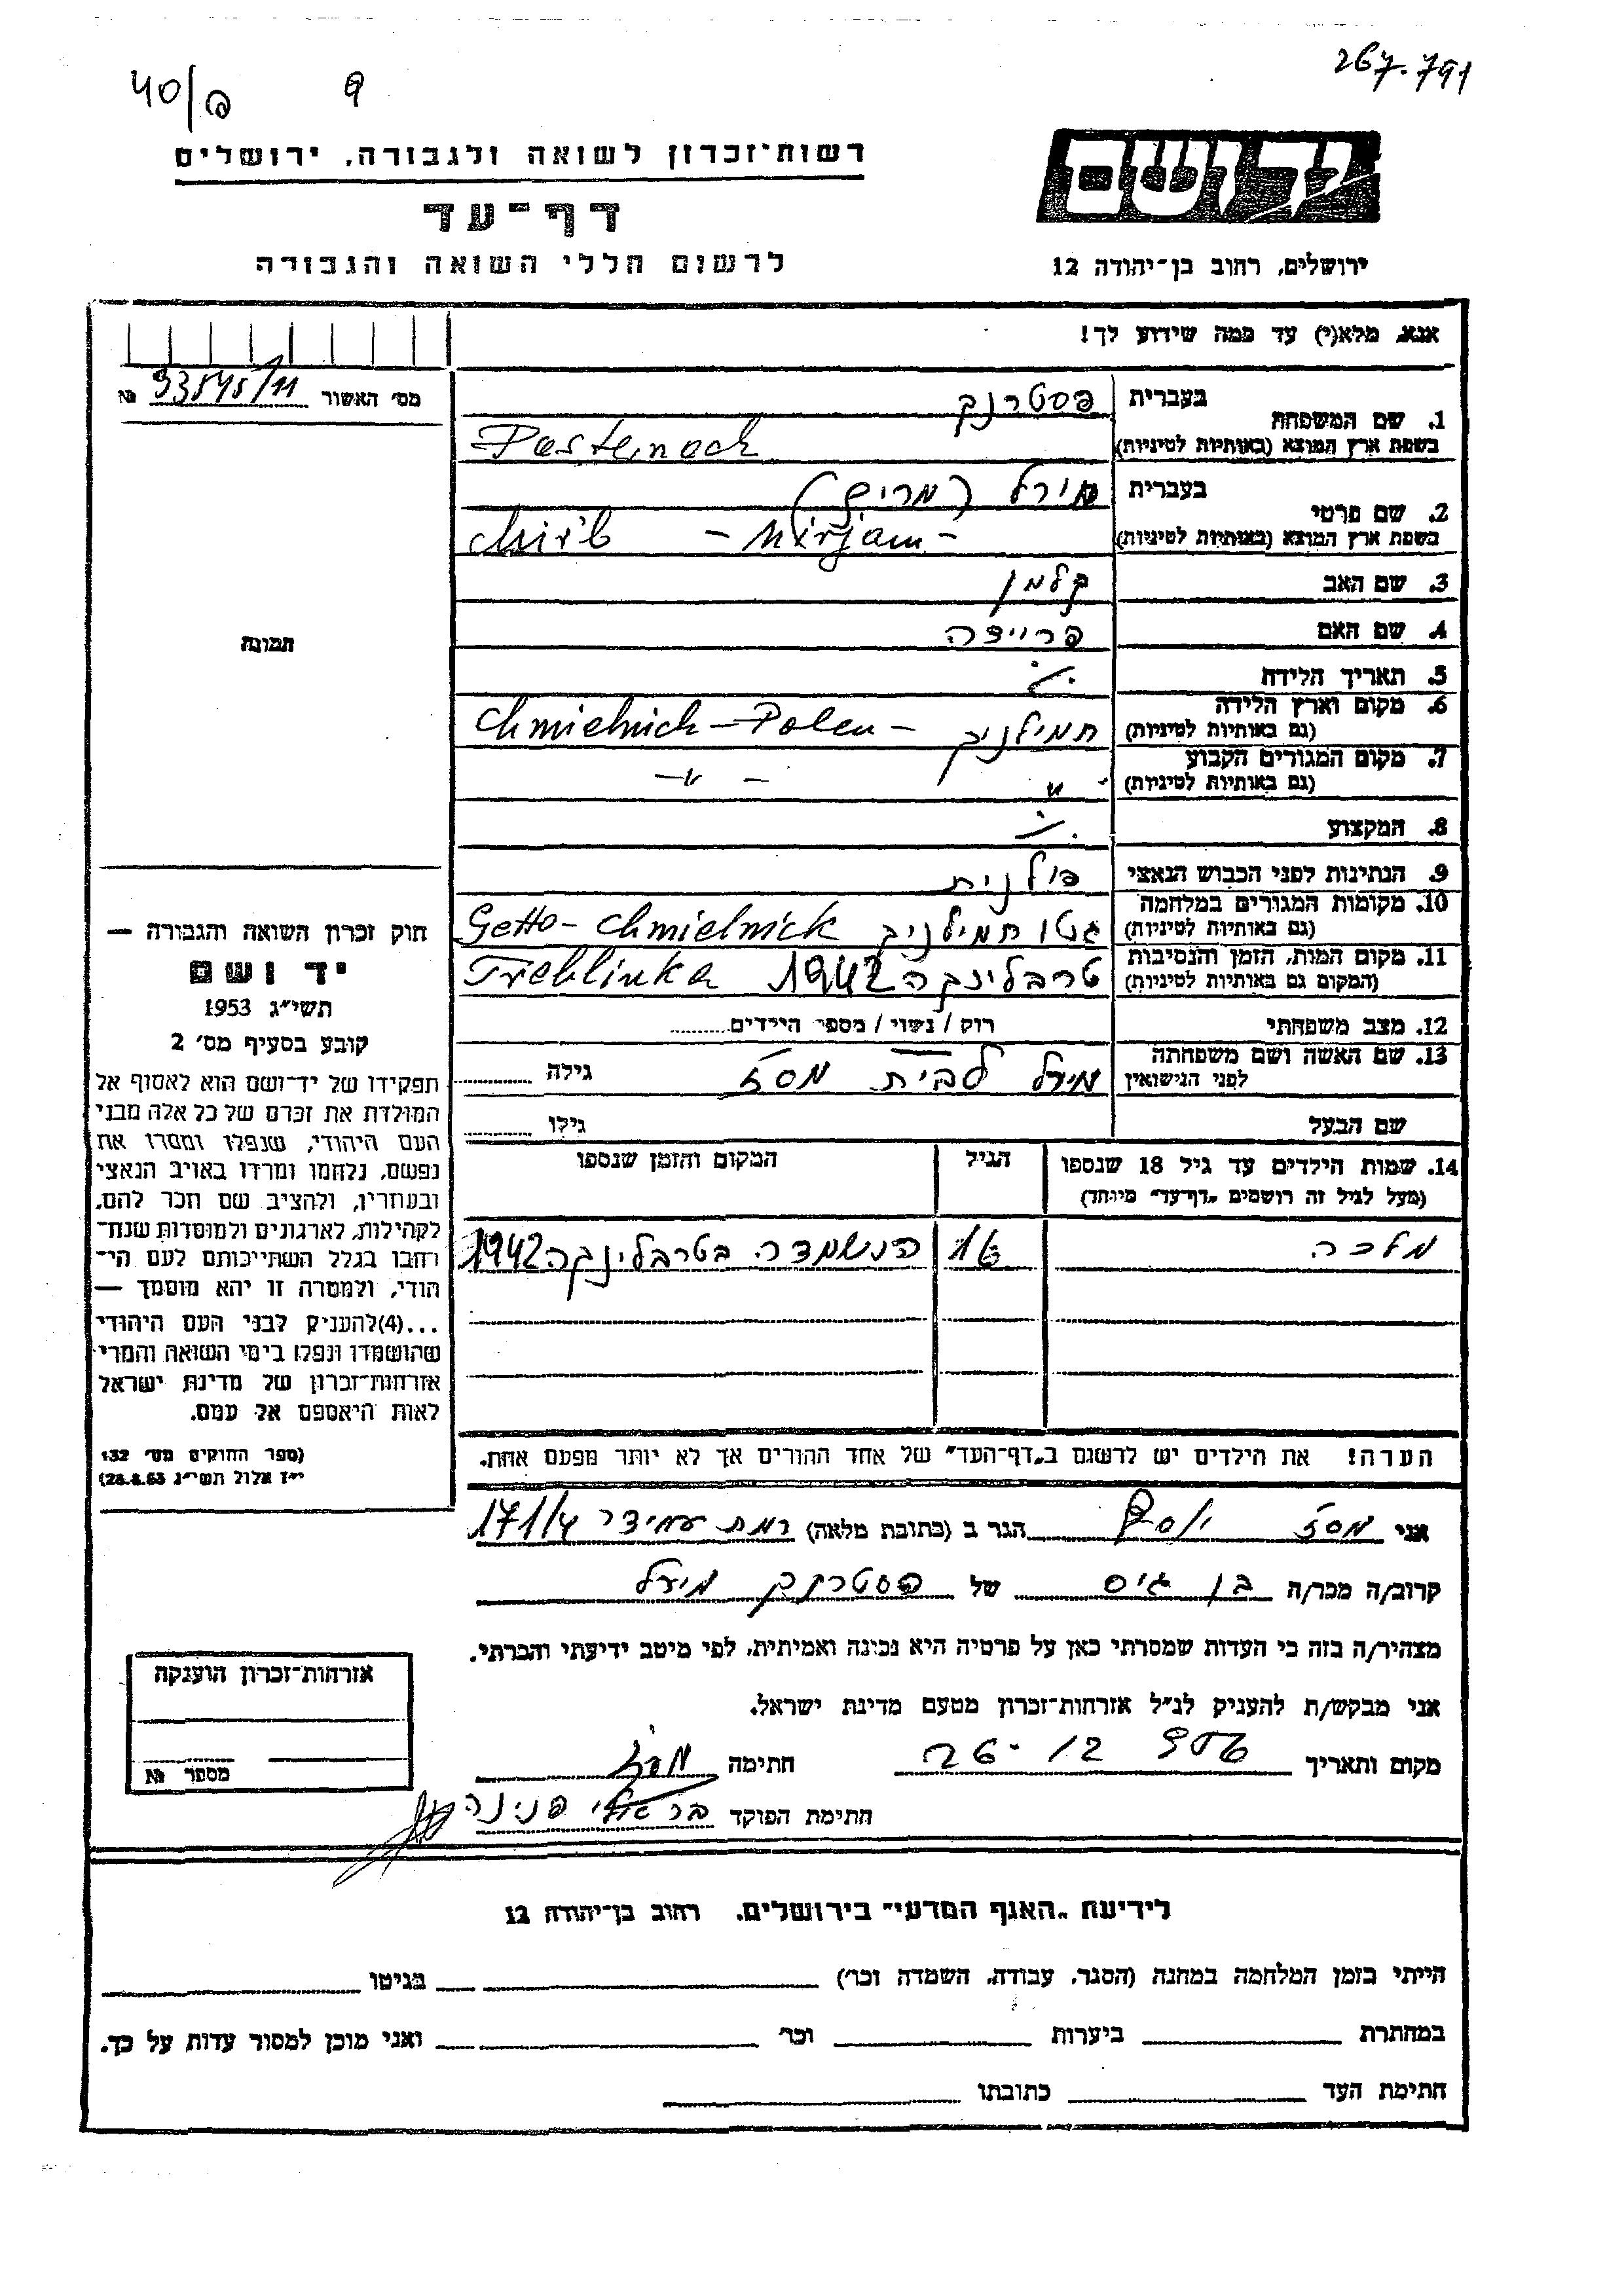 267.791
40/
9
רשות־זכרון לשואה ולגבורה, ירושלים
יד ושם
דף־עד
לרשום חללי השואה והגבורה
ירושלים, רחוב בן־יהודה 12
אנא, מלא(י) עד כמה שידוע לך!
מס׳ האשור 93545/11 №
1. שם המשפחה
בעברית פסטרנק
בשפת ארץ המוצא (באותיות לטיניות) Pasternack
2. שם פרטי
בעברית מירל (מרים)
בשפת ארץ המוצא (באותיות לטיניות) - Mirjam -
3. שם האב קלמן
4. שם האם פריידה
5. תאריך הלידה ./.
6. מקום וארץ הלידה
(גם באותיות לטיניות) חמילניק Chmielnick - Polen -
7. מקום המגורים הקבוע
(גם באותיות לטיניות) " - " -
8. המקצוע ./.
9. הנתינות לפני הכבוש הנאצי פולנית
10. מקומות המגורים במלחמה
(גם באותיות לטיניות) גטו חמילניק Getto - Chmielnick
11. מקום המות, הזמן והנסיבות
(המקום גם באותיות לטיניות) טרבלינקה 1942 Treblinka
12. מצב משפחתי רוק / נשוי / מספר הילדים
13. שם האשה ושם משפחתה
לפני הנישואין מירל לבית גילה
שם הבעל גילו
14. שמות הילדים עד גיל 18 שנספו הגיל המקום והזמן שנספו
(מעל לגיל זה רושמים „דף־עד״ מיוחד)
מלכה 16 הנשמדה בטרבלינקה 1942
הערה! את הילדים יש לרשום ב„דף־העד״ של אחד ההורים אך לא יותר מפעם אחת.
תמונה
חוק זכרון השואה והגבורה —
יד ושם
תשי״ג 1953
קובע בסעיף מס׳ 2
תפקידו של יד־ושם הוא לאסוף אל
המולדת את זכרם של כל אלה מבני
העם היהודי, שנפלו ומסרו את
נפשם, נלחמו ומרדו באויב הנאצי
ובעוזריו, ולהציב שם וזכר להם,
לקהילות, לארגונים ולמוסדות שנח־
רבו בגלל השתייכותם לעם הי־
הודי, ולמטרה זו יהא מוסמך —
...(4)להעניק לבני העם היהודי
שהושמדו ונפלו בימי השואה והמרי
אזרחות־זכרון של מדינת ישראל
לאות היאספם אל עמם.
(ספר החוקים מס׳ 132
י״ז אלול תשי״ג 28.8.53)
אני יוסף הגר ב (כתובת מלאה) רמת עמידר 171/4
קרוב/ה מכר/ה בן גיס של פסטרנק מירל
מצהיר/ה בזה כי העדות שמסרתי כאן על פרטיה היא נכונה ואמיתית, לפי מיטב ידיעתי והכרתי.
אני מבקש/ת להעניק לנ״ל אזרחות־זכרון מטעם מדינת ישראל.
מקום ותאריך 26-12 חתימה
חתימת הפוקד פנינה
אזרחות־זכרון הוענקה
מספר №
לידיעת „האגף המדעי״ בירושלים, רחוב בן־יהודה 12
הייתי בזמן המלחמה במחנה (הסגר, עבודה, השמדה וכו׳) בגיטו
במחתרת ביערות וכו׳ ואני מוכן למסור עדות על כך.
חתימת העד כתובתו